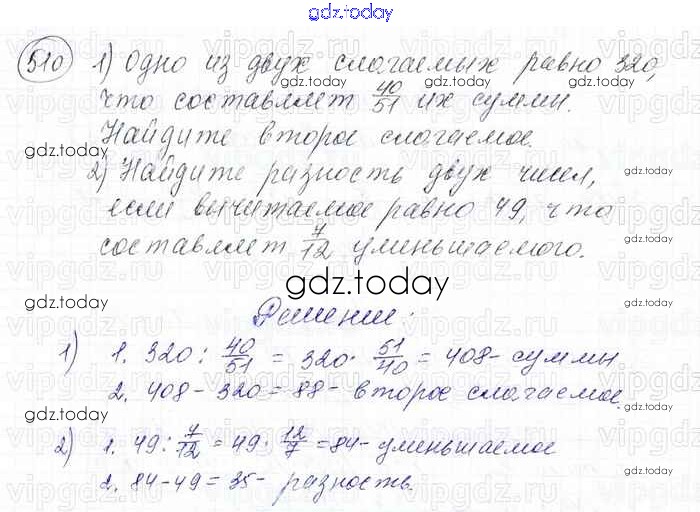 gdz.today
510 1) Одно из двух слагаемых равно 320,
что составляет 40/51 их суммы.
Найдите второе слагаемое.
2) Найдите разность двух чисел,
если вычитаемое равно 49, что
составляет 7/12 уменьшаемого.
Решение:
1) 1. 320 : 40/51 = 320 · 51/40 = 408 - суммы
2. 408 - 320 = 88 - второе слагаемое.
2) 1. 49 : 7/12 = 49 · 12/7 = 84 - уменьшаемое
2. 84 - 49 = 35 - разность.
gdz.today
gdz.today
gdz.today
gdz.today
gdz.today
gdz.today
gdz.today
gdz.today
gdz.today
gdz.today
gdz.today
gdz.today